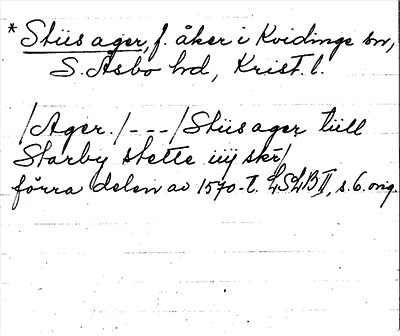 * Stiis ager, f. åker i Kvidinge sn,
S. Åsbo hd, Krist. l.
/Ager./---/Stiis ager till
Starby stette iiij skr/
förra delen av 1570-t. LSLB II, s. 6. orig.